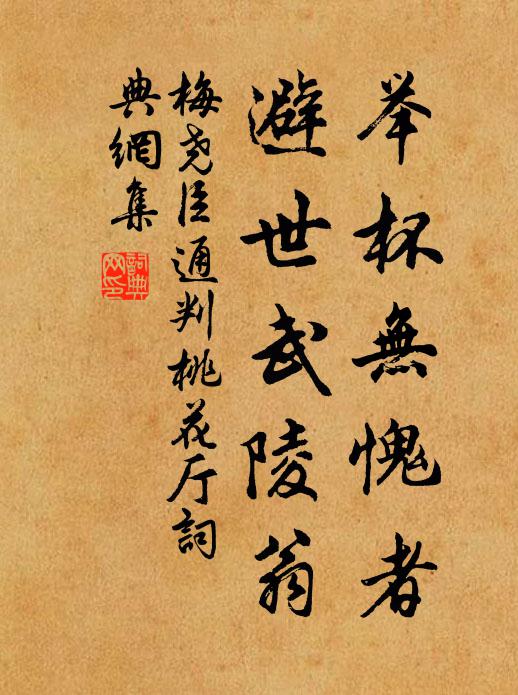 举杯無愧者
避世武陵翁
梅尧臣通判桃花厅詞
典網集
詞典網印